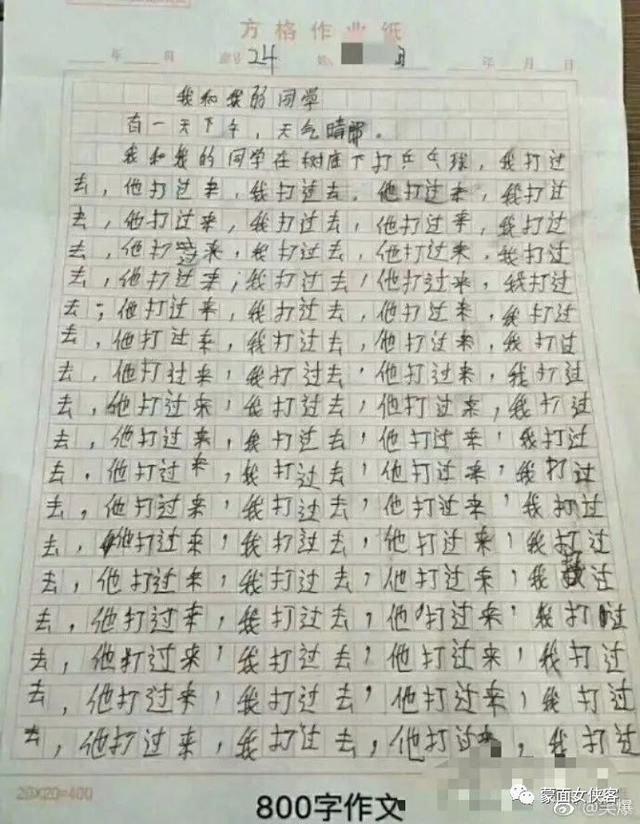 方格作业纸
年 月 24 年 月 日
我和我的同学
有一天下午，天气晴。
我和我的同学在树底下打乒乓球，我打过
去，他打过来，我打过去，他打过来，我打过
去，他打过来，我打过去，他打过来，我打过
去，他打过来，我打过去，他打过来，我打过
去，他打过来，我打过去，他打过来，我打过
去，他打过来，我打过去，他打过来，我打过
去，他打过来，我打过去，他打过来，我打过
去，他打过来，我打过去，他打过来，我打过
去，他打过来，我打过去，他打过来，我打过
去，他打过来，我打过去，他打过来，我打过
去，他打过来，我打过去，他打过来，我打过
去，他打过来，我打过去，他打过来，我打过
去，他打过来，我打过去，他打过来，我打过
去，他打过来，我打过去，他打过来，我过
去，他打过来，我打过去，他打过来，我打过
去，他打过来，我打过去，他打过来，我打过
去，他打过来，我打过去，他打过来，我打过
去，他打过来，我打过去，他打过来，我打过
20X20=400
800字作文
蒙面女侠客